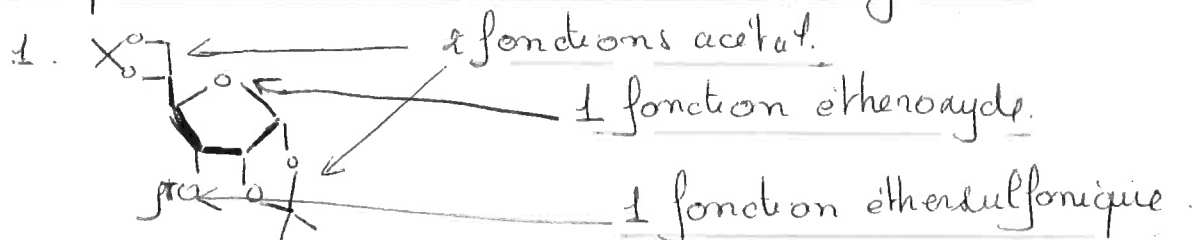 1.
2 fonctions acétal.
1 fonction étheroxyde.
1 fonction éthersulfonique.
O
O
O
O
O